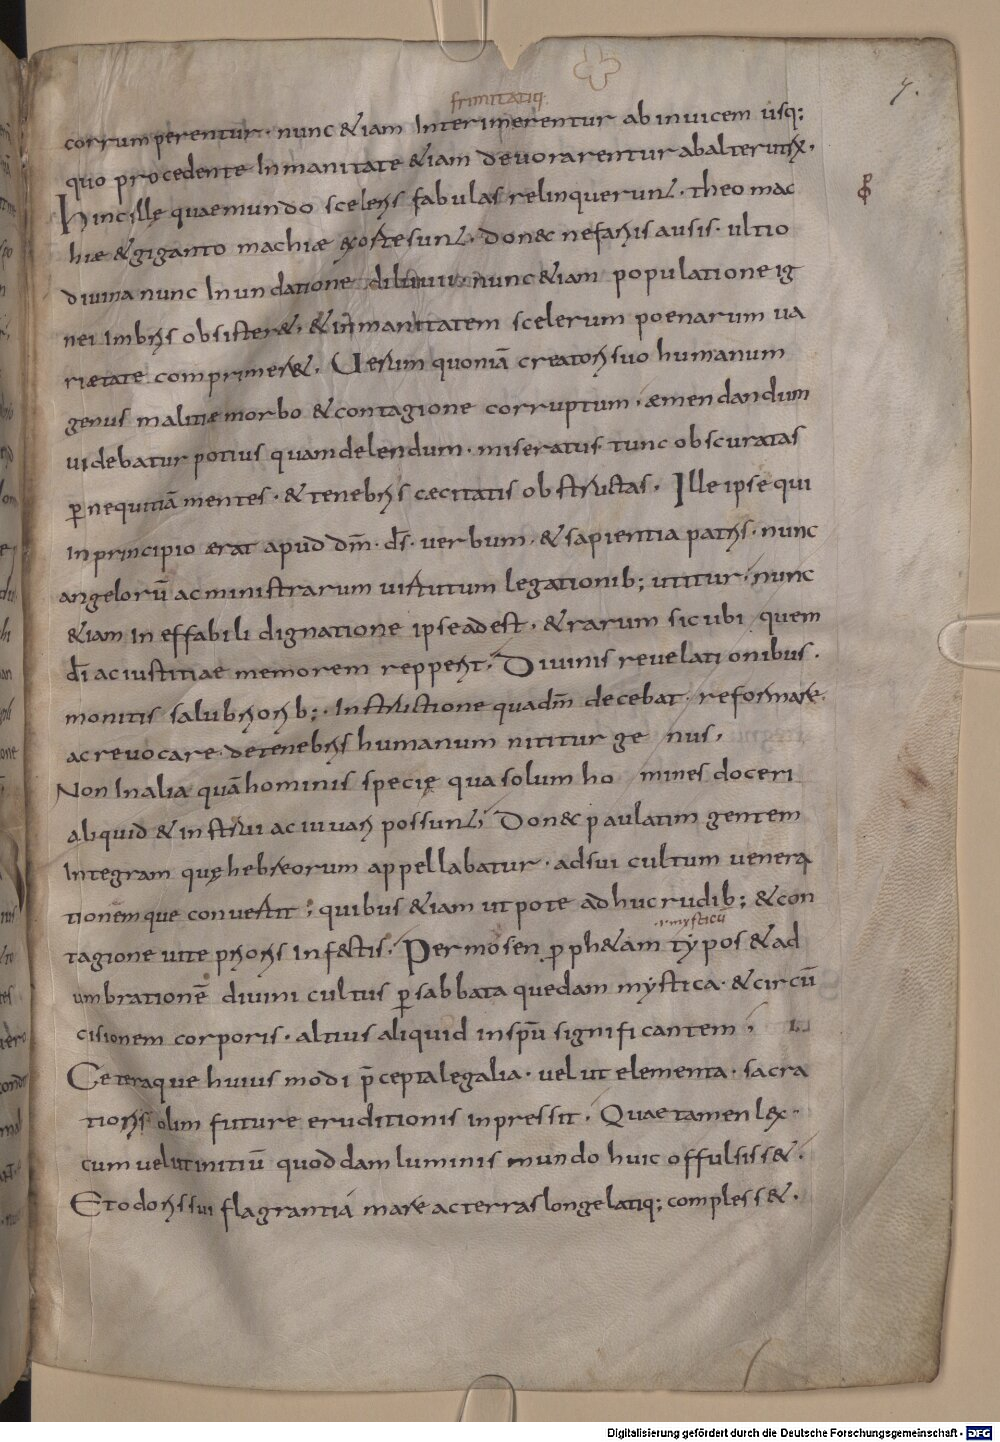 7.
frimitatiq.
corrumperentur· nunc &iam Interimerentur ab inuicem usq;
quo procedente Inmanitate &iam deuorarentur abalterutrȩ.
Hincillę quaemundo sceleris fabulas relinquerunt· theomac
hiæ &giganto machiæ exortesunt· don&c nefariis ausis· ultio
diuina nunc Inundatione diluuii· nunc &iam populatione ig
nei Imbris obsister&. &inmanitatem scelerum poenarum ua
riætate comprimer&. Uerum quoniā creatorisuo humanum
genus malitiæ morbo &contagione corruptum· æmendandum
uidebatur potius quamdelendum· miseratus tunc obscuratas
p̄ nequitiā mentes· &tenebris cæcitatis obstructas. Ille ipse qui
In principio ærat apud dm̄· ds̄· uerbum· &sapientia patris· nunc
angelorū ac ministrarum uirtutum legationib; utitur· nunc
&iam In effabili dignatione ipse adest· &rarum sicubi quem
dī ac iustitiae memorem repperit. Diuinis reuelationibus·
monitis salubriorib;· Instructione quadm̄ decebat· reformare·
ac reuocare· detenebris humanum nititur ge nus.
Non Inalia quā hominis specię qua solum ho mines doceri
aliquid &instrui ac iuuari possunt; Don&c paulatim gentem
Integram quę hebreorum appellabatur· adsui cultum uenera
tionemque conuertit; quibus &iam utpote adhuc rudib; &con
·rmysticū
tagione uite prioris Inf&tis. Per mosen p̄ph&am typos &ad
umbrationē diuini cultus p̄ sabbata quedam mystica· &circū
cisionem corporis· altius aliquid inspū significantem;
Ceteraque huius modi p̄cepta legalia· uel ut elementa· sacra
tioris olim future eruditionis inpressit. Quae tamen lex·
cum uelut initiū quoddam luminis mundo huic offulsiss&.
Et odoris sui flagrantiā mare ac terras longe latiq; compless&.
Digitalisierung gefördert durch die Deutsche Forschungsgemeinschaft - DFG